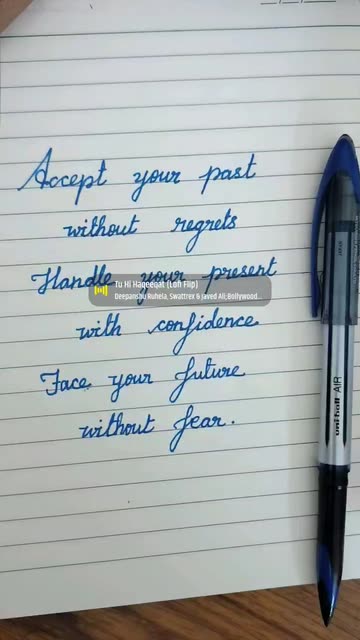 Accept your past
without regrets
Handle your present
Tu Hi Haqeeqat (Lofi Flip)
Deepanshu Ruhela, Swattrex & Javed Ali,Bollywood...
with confidence
Face your future
without fear.
uni-ball AIR